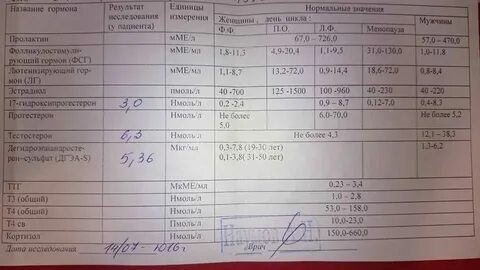 Название гормона Результат исследования (у пациента) Единицы измерения Нормальные значения
Женщины, день цикла: Мужчины
Ф.Ф. П.О. Л.Ф. Менопауза
Пролактин мМЕ/л 67,0 – 726,0 57,0 – 470,0
Фолликулостимулирующий гормон (ФСГ) мМЕ/мл 1,8-11,3 4,9-20,4 1,1-9,5 31,0-130,0 1,0-11,8
Лютеинизирующий гормон (ЛГ) мМЕ/мл 1,1-8,7 13,2-72,0 0,9-14,4 18,6-72,0
Эстрадиол пмоль/л 40 -700 125 -1500 100 -960 40 -230 40 -220
17-гидроксипрогестерон 3,0 нмоль/л 0,2 -2,4 0,9 – 8,7 0,12-7,0 0,4-8,3
Прогестерон Нмоль/л Не более 5,0 6.0-70.0 Не более 5,2
Тестостерон 6,3 Нмоль/л Не более 4,3 12,1 – 38,3
Дегидроэпиандростерон–сульфат (ДГЭА-S) 5,36 Мкг/мл 0,3-7,8 (19-30 лет) 1,3-6,2
0,1-3,8( 31-50 лет)
ТТГ МкМЕ/мл 0,23 – 3,4
Т3 (общий) Нмоль/л 1,0 – 2,8
Т4 (общий) Нмоль/л 53,0 – 158,0
Т4 св Нмоль/л 10,0-23,0
Кортизол Нмоль/л 150,0-660,0
Дата исследования 14/07 Врач